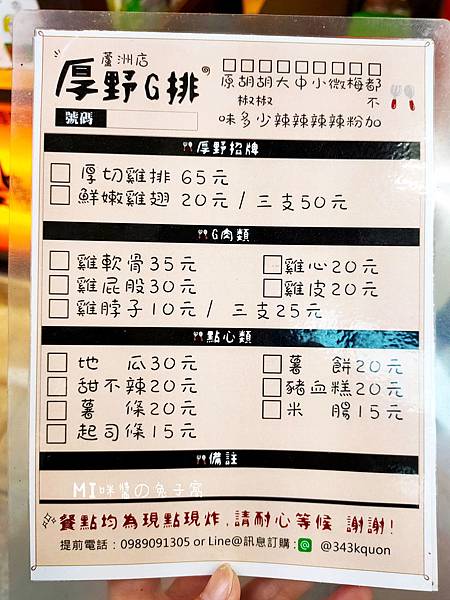 蘆洲店
厚野G排
號碼
□□□□□□□□□
原胡胡大中小微梅都
椒椒 不
味多少辣辣辣辣粉加
厚野招牌
□ 厚切雞排 65元
□ 鮮嫩雞翅 20元 / 三支50元
G肉類
□ 雞軟骨35元 □ 雞心20元
□ 雞屁股30元 □ 雞皮20元
□ 雞脖子10元 / 三支25元
點心類
□ 地 瓜30元 □ 薯 餅20元
□ 甜不辣20元 □ 豬血糕20元
□ 薯 條20元 □ 米 腸15元
□ 起司條15元
備註
MI咪醬の兔子窩
餐點均為現點現炸,請耐心等候 謝謝!
提前電話:0989091305 or Line@訊息訂購: @343kquon